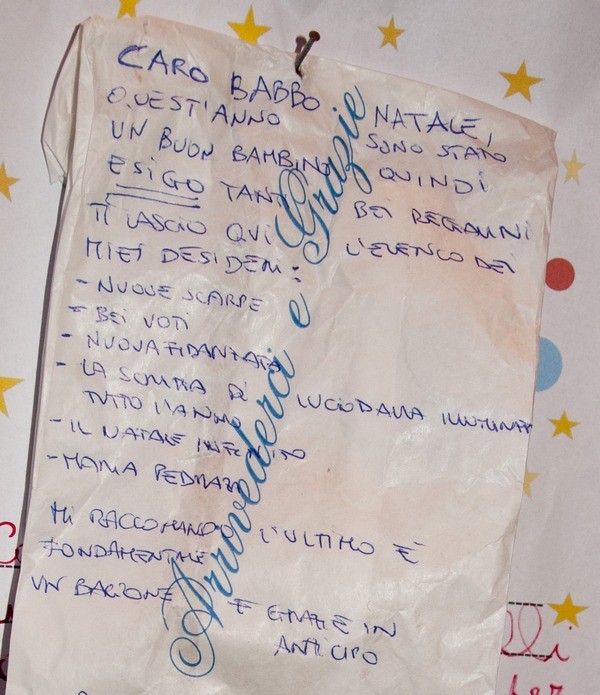 CARO BABBO NATALE,
QUEST'ANNO SONO STATO
UN BUON BAMBINO QUINDI
ESIGO TANTI BEI REGALINI
TI LASCIO QUI L'ELENCO DEI
MIEI DESIDERI:
- NUOVE SCARPE
- BEI VOTI
- NUOVA FIDANZATA
- LA SCRITTA DI LUCIO DALLA ILLUMINATA
TUTTO L'ANNO
- IL NATALE INFINITO
- MAMMA
MI RACCOMANDO L'ULTIMO È
FONDAMENTALE
UN BACIONE E GRAZIE IN
ANTICIPO
Arrivederci e Grazie